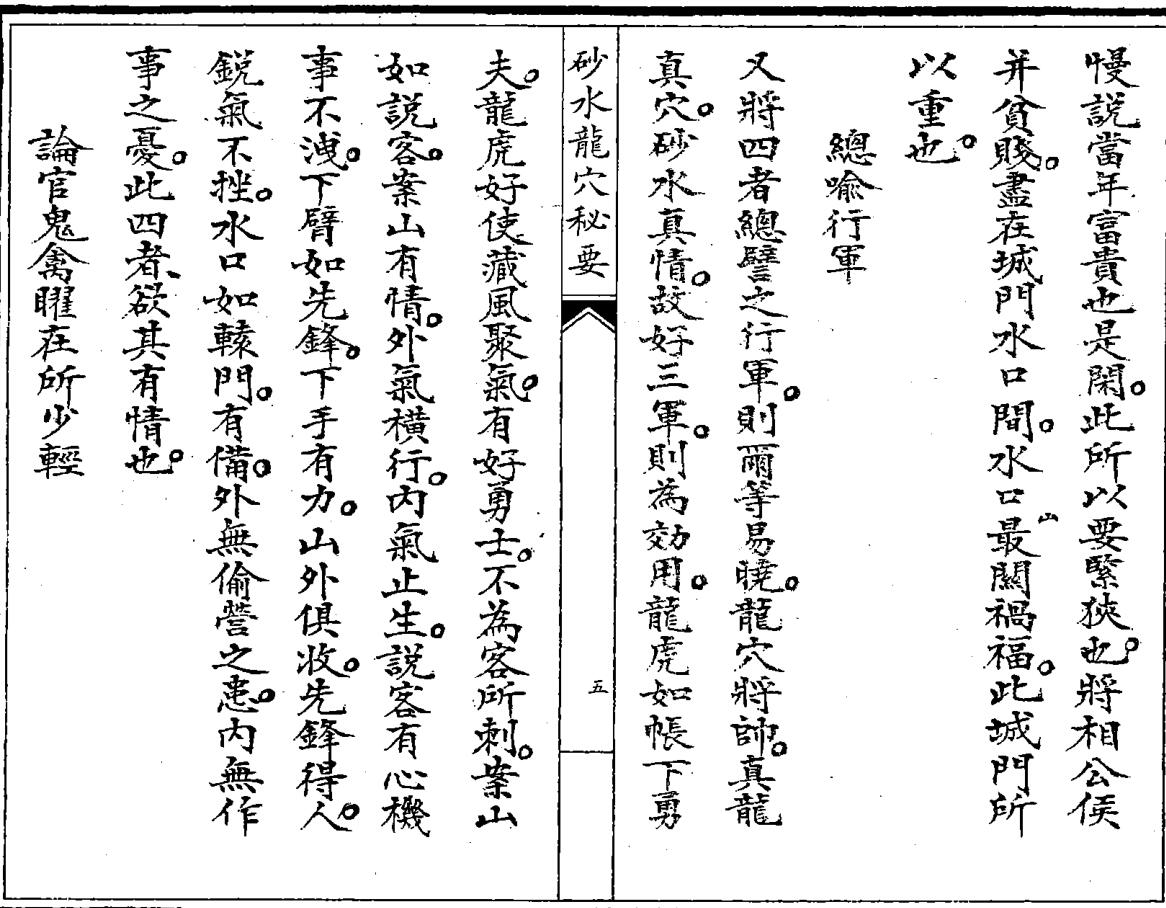 慢説當年富貴也是閑。此所以要緊狹也。將相公侯
并貧賤。盡在城門水口間。水口山最關禍福。此城門所
以重也。
總喻行軍
又將四者總譬之行軍。則爾等易曉。龍穴將帥。真龍
真穴。砂水真情。故好三軍。則為効用。龍虎如帳下勇
砂水龍穴秘要
五
夫。龍虎好使藏風聚氣。有好勇士。不為客所刺。案山
如説客。案山有情。外氣橫行。内氣止生。説客有心機
事不洩。下臂如先鋒。下手有力。山外俱收。先鋒得人。
鋭氣不挫。水口如轅門。有備。外無偷營之患。内無作
事之憂。此四者、欲其有情也。
論官鬼禽曜在所少輕